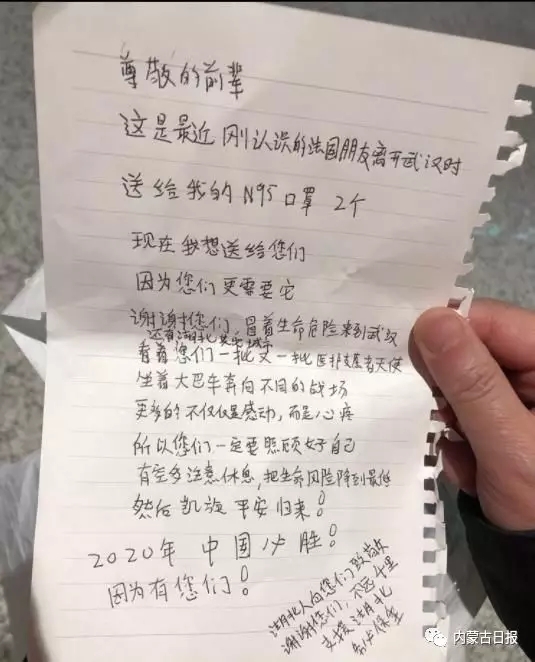 尊敬的前辈
这是最近刚认识的法国朋友离开武汉时
送给我的N95口罩 2个
现在我想送给您们
因为您们更需要它
谢谢您们,冒着生命危险来到武汉
还有湖北其它城市
看着您们一批又一批医护支援者天使
坐着大巴车奔向不同的战场
更多的不仅仅是感动,而是心疼
所以您们一定要照顾好自己
有空多注意休息,把生命风险降到最低
然后凯旋 平安归来!
2020年 中国必胜!
因为有您们!
湖北人向您们致敬
谢谢您们,不远千里
支援湖北
内蒙古日报